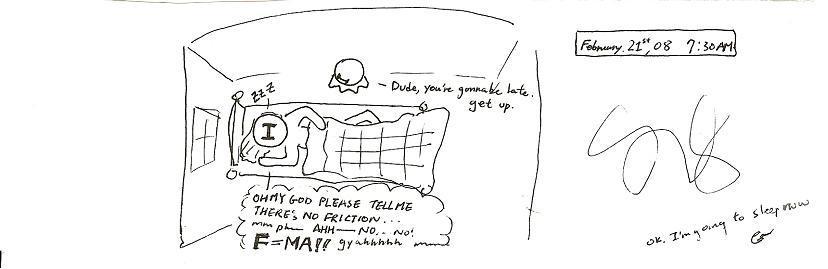 February 21st, 08 7:30AM
ZZZ
- Dude, you're gonna be late.
get up.
I
OH MY GOD PLEASE TELL ME
THERE'S NO FRICTION...
mmph— AHH— NO... NO!
F=MA!! gyahhhhh mmm
ok. I'm going to sleep now